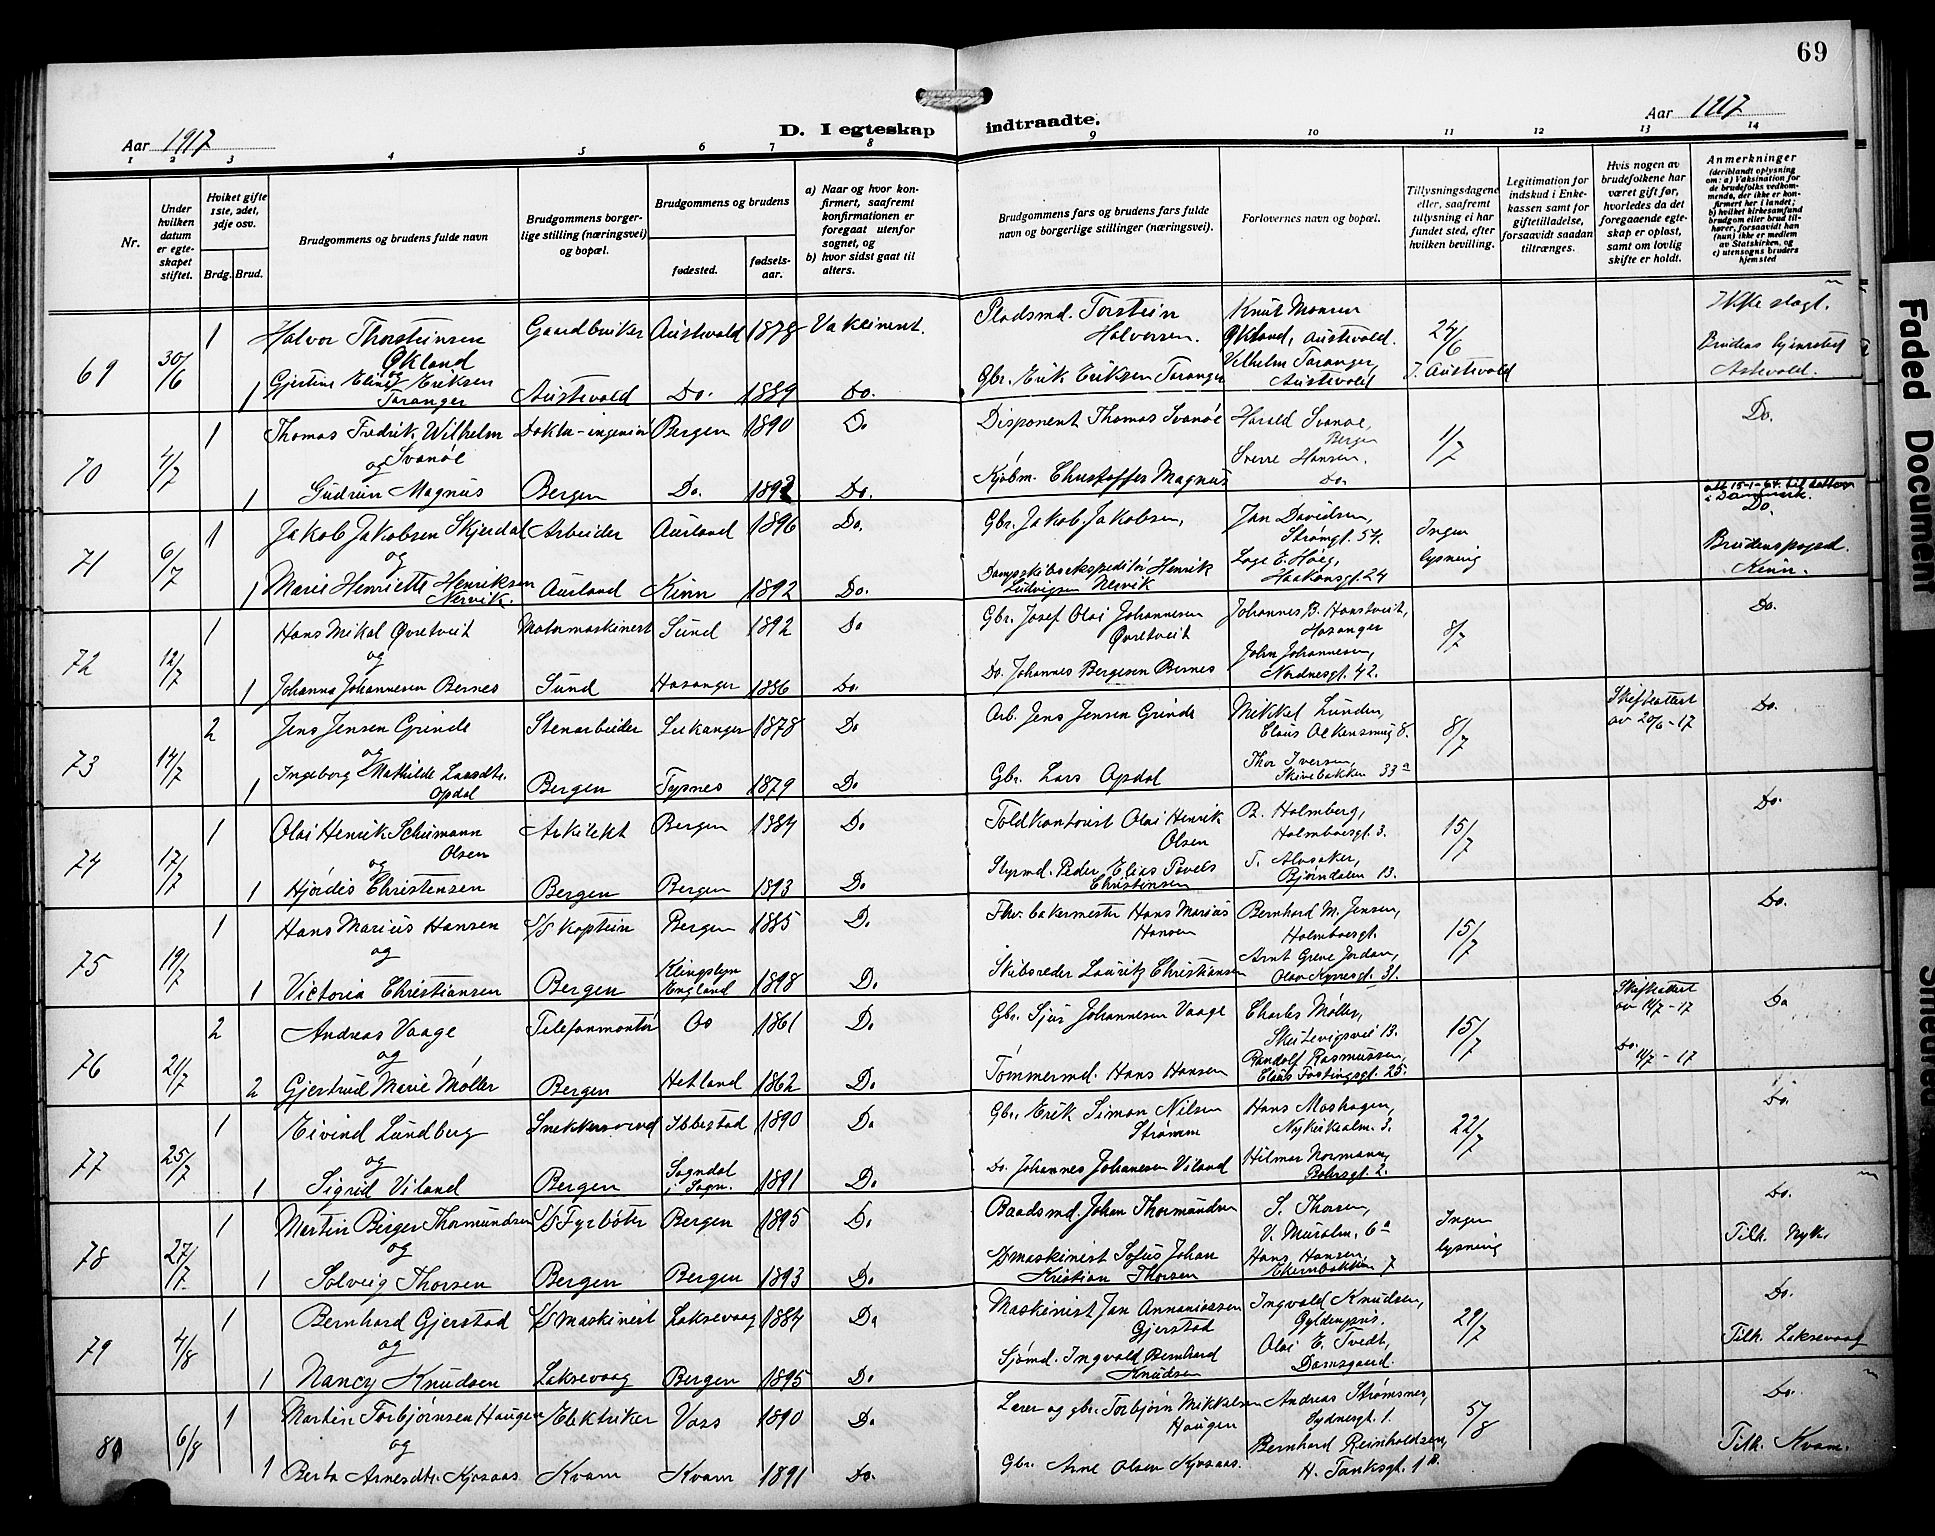 69
Aar 1917
D. I egteskap indtraadte.
Aar 1917
1 2 3 4 5 6 7 8 9 10 11 12 13 14
Nr.
Under hvilken datum er egteskapet stiftet.
Hvilket gifte 1ste, 2det, 3dje osv.
Brdg. Brud.
Brudgommens og brudens fulde navn
Brudgommens borgerlige stilling (næringsvei) og bopæl.
Brudgommens og brudens
fødested.
fødselsaar.
a) Naar og hvor konfirmert, saafremt konfirmationen er foregaat utenfor sognet, og
b) hvor sidst gaat til alters.
Brudgommens fars og brudens fars fulde navn og borgerlige stillinger (næringsvei).
Forlovernes navn og bopæl.
Tillysningsdagene eller, saafremt tillysning ei har fundet sted, efter hvilken bevilling.
Legitimation for indskud i Enkekassen samt for giftetilladelse, forsaavidt saadan tiltrænges.
Hvis nogen av brudefolkene har været gift før, hvorledes da det foregaaende egteskap er opløst, samt om lovlig skifte er holdt.
Anmerkninger
69 30/6 1 Halvor Thorsteinsen Økland Gaardbruker Austevold 1878 Pladsmd. Torstein Halvorsen. Knut Monsen Økland, Austevold. 24/6 Ikke slegt.
og
1 Gjertine Eline Eriksen Taranger Austevold Do. 1889 Do. Gbr. Erik Eriksen Taranger Vilhelm Taranger, Austevold I. Austevold Brudens hjemsted
70 4/7 1 Thomas Fredrik Wilhelm Svanøe Bergen 1890 Do Disponent Thomas Svanøe Harald Svanøe, Bergen 1/7 Do.
og
1 Gudrun Magnus Bergen Do. 1892 Do. Kjøbm. Christoffer Magnus Sverre Hansen. Do.
71 6/7 1 Jakob Jakobsen Skjerdal Arbeider Aurland 1896 Do. Gbr. Jakob Jakobsen, Jan Davidsen, Strømgt. 54. Ingen lysning Do.
og
1 Marie Henriette Henriksen Nervik. Aurland Kinn 1892 Do. Dampskibsekspeditør Henrik Ludvigsen Nervik Haakonsgt. 24 Kinn.
72 12/7 1 Hans Mikal Øvretveit Motormaskinist Sund 1892 Do Gbr. Josef Olai Johannesen Øvretveit Johannes B. Hanstveit, Hosanger 8/7 Do.
og
1 Johanna Johannesen Bernes Sund Hosanger 1886 Do. Do. Johannes Bergesen Bernes John Johannesen, Nordnesgt. 42.
73 14/7 2 Jens Jensen Grinde Stenarbeider Leikanger 1878 Do Arb. Jens Jensen Grinde Mikkel Lunden, 8/7 Skifteattest av 20/6-17 Do.
og
1 Ingeborg Mathilde Larsdtr. Opdal Bergen Tysnes 1879 Do Gbr. Lars Opdal Thor Iversen, Skivebakken 33a
74 17/7 1 Olai Henrik Schumann Olsen Arkitekt Bergen 1884 Do Toldkontorist Olai Henrik Olsen B. Holmberg, Holmboesgt. 3. 15/7 Do.
og
1 Hjørdis Christensen Bergen Bergen 1893 Do Styrmd. Peder Elias Povels Christensen
75 19/7 1 Hans Marius Hansen S/S kaptein Bergen 1885 Do Fhv. bakermester Hans Marius Hansen Bernhard M. Jensen, Holmboesgt. 15/7 Do.
og
1 Victoria Christiansen Bergen England 1898 Do. Skibsreder Lauritz Christiansen Arnt Greve Jordan, Olav Kyrresgt. 31.
76 21/7 2 Andreas Vaage Telefonmontør Os 1861 Do Gbr. Sjur Johannesen Vaage Charles Møller, Skutevigsvei 13. 15/7 Skifteattest av 14/7-17 Do
og
2 Gjertrud Marie Møller Bergen Hetland 1862 Do Tømmermd. Hans Hansen Randolf Rasmussen, Do. 11/7-17
77 25/7 1 Eivind Lundberg Snekkersvend Ibbestad 1890 Do Gbr. Erik Simon Nilsen Strømm Hans Moshagen, Nykirkealm. 3. 22/7 Do.
og
1 Sigrid Viland Bergen Sogndal i Sogn. 1891 Do Do. Johannes Johannesen Viland Hilmar Normann,
78 27/7 1 Martin Birger Thormundsen S/S Fyrbøter Bergen 1895 Do Baadsmd. Johan Thormundsen S. Thorsen, V. Muralm. 6a Ingen lysning Do.
og
1 Solveig Thorsen Bergen Bergen 1893 Do Maskinist Sofus Johan Kristian Thorsen Hans Hansen, 7 Tilh. Nyk.
79 4/8 1 Bernhard Gjerstad S/S maskinist Laksevaag 1884 Do Maskinist Jan Annaniassen Gjerstad Ingvald Knudsen, Gyldenpris. 29/7 Do.
og
1 Nancy Knudsen Laksevaag Bergen 1895 Do Sjømd. Ingvald Bernhard Knudsen Olai E. Tvedt, Damsgaard. Tilh. Laksevaag
80 6/8 1 Martin Torbjørnsen Haugen Elektriker Voss 1890 Do Lærer og gbr. Torbjørn Mikkelsen Haugen Andreas Strømsnes, Sydnesgt. 1. 5/8 Do.
og
1 Berta Arnesdtr. Kjosaas Kvam Kvam 1891 Do. Gbr. Arne Olsen Kjosaas. Bernhard Reinholdsen, H. Tanksgt. 1B. Tilh. Kvam.
Faded Document